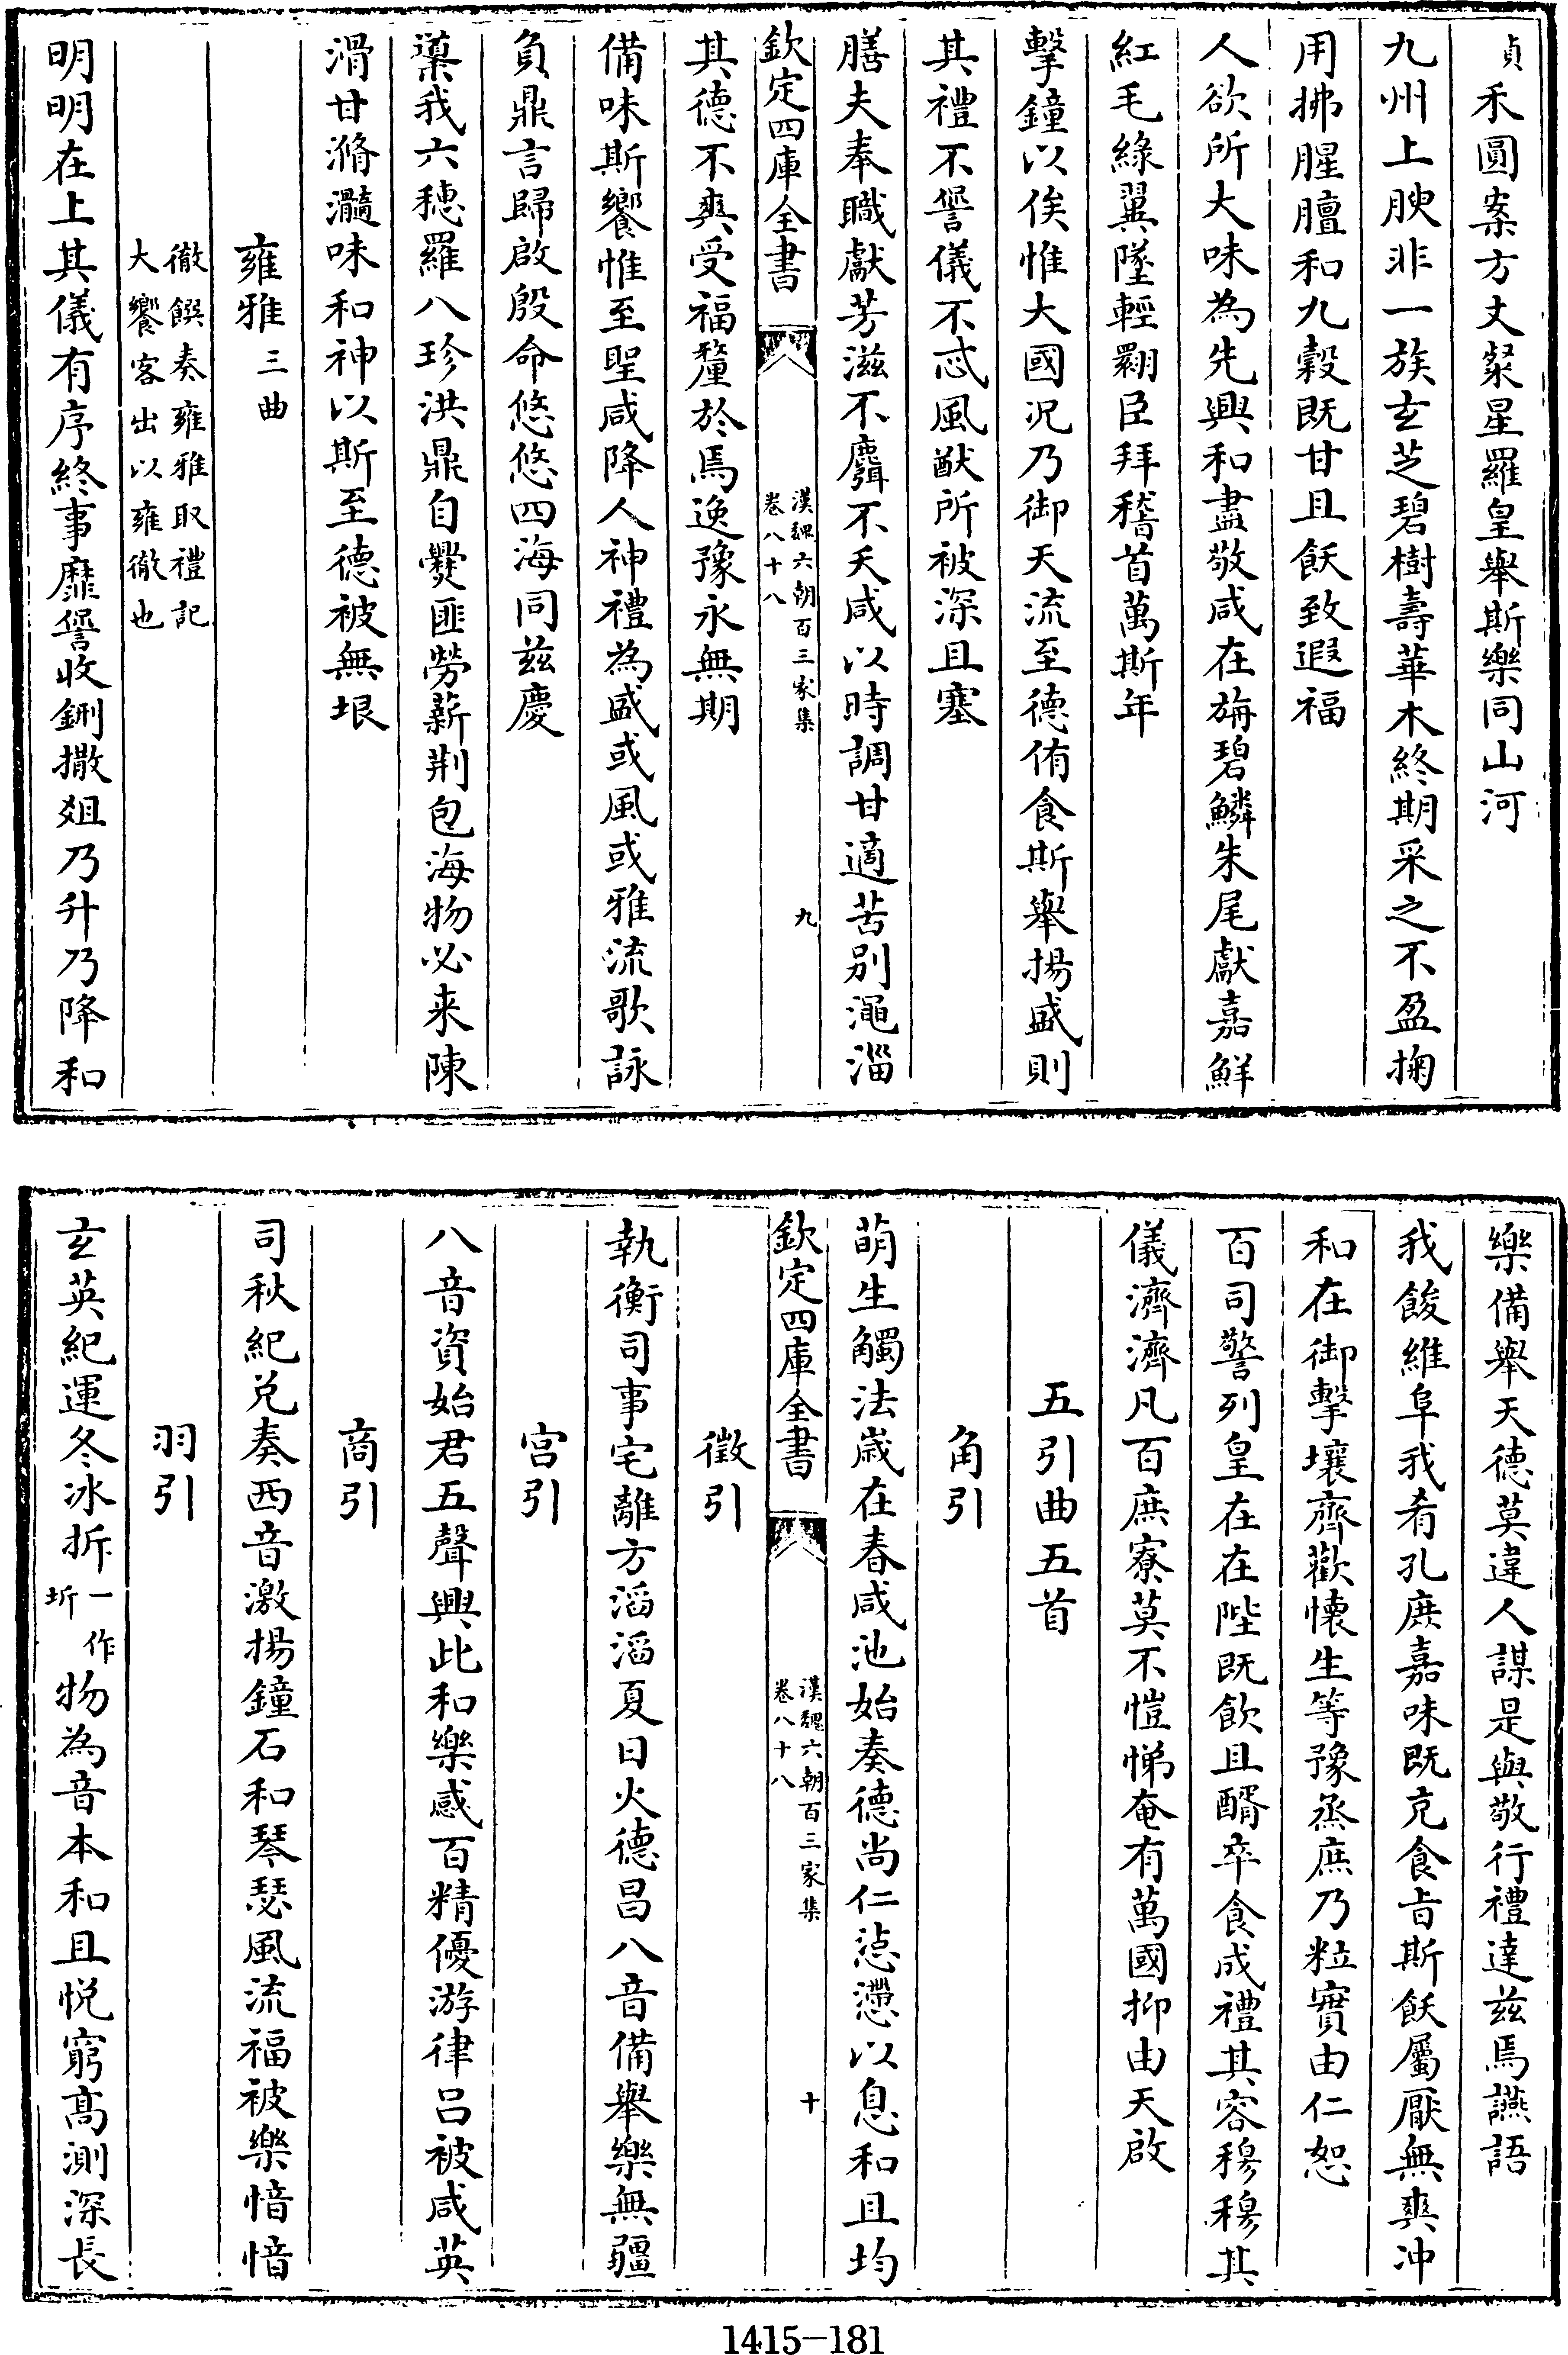 貞禾圓案方丈粲星羅皇舉斯樂同山河
九州上腴非一族玄芝碧樹壽華木終期采之不盈掬
用拂腥膻和九穀既甘且飫致遐福
人欲所大味為先興和盡敬咸在旃碧鱗朱尾獻嘉鮮
紅毛綠翼墜輕翾臣拜稽首萬斯年
擊鐘以俟惟大國況乃御天流至德侑食斯舉揚盛則
其禮不諐儀不忒風猷所被深且塞
膳夫奉職獻芳滋不麛不夭咸以時調甘適苦別澠淄
欽定四庫全書
漢魏六朝百三家集
卷八十八
九
其德不爽受福釐於焉逸豫永無期
備味斯饗惟至聖咸降人神禮為盛或風或雅流歌詠
負鼎言歸啟殷命悠悠四海同茲慶
䆃我六穗羅八珍洪鼎自爨匪勞薪荊包海物必来陳
滑甘滫瀡味和神以斯至德被無垠
雍雅三曲
徹饌奏雍雅取禮記
大饗客出以雍徹也
明明在上其儀有序終事靡諐收鉶撤俎乃升乃降和
樂備舉天德莫違人謀是與敬行禮達茲焉讌語
我餕維阜我肴孔庶嘉味既充食旨斯飫屬厭無爽沖
和在御擊壤齊歡懷生等豫烝庶乃粒實由仁恕
百司警列皇在在陛既飲且醑卒食成禮其容穆穆其
儀濟濟凡百庶寮莫不愷悌奄有萬國抑由天啟
五引曲五首
角引
萌生觸法歲在春咸池始奏德尚仁惉懘以息和且均
欽定四庫全書
漢魏六朝百三家集
卷八十八
十
徵引
執衡司事宅離方滔滔夏日火德昌八音備舉樂無疆
宮引
八音資始君五聲興此和樂感百精優游律呂被咸英
商引
司秋紀兌奏西音激揚鐘石和琴瑟風流福被樂愔愔
羽引
玄英紀運冬冰折一作圻物為音本和且悅窮高測深長
1415-181